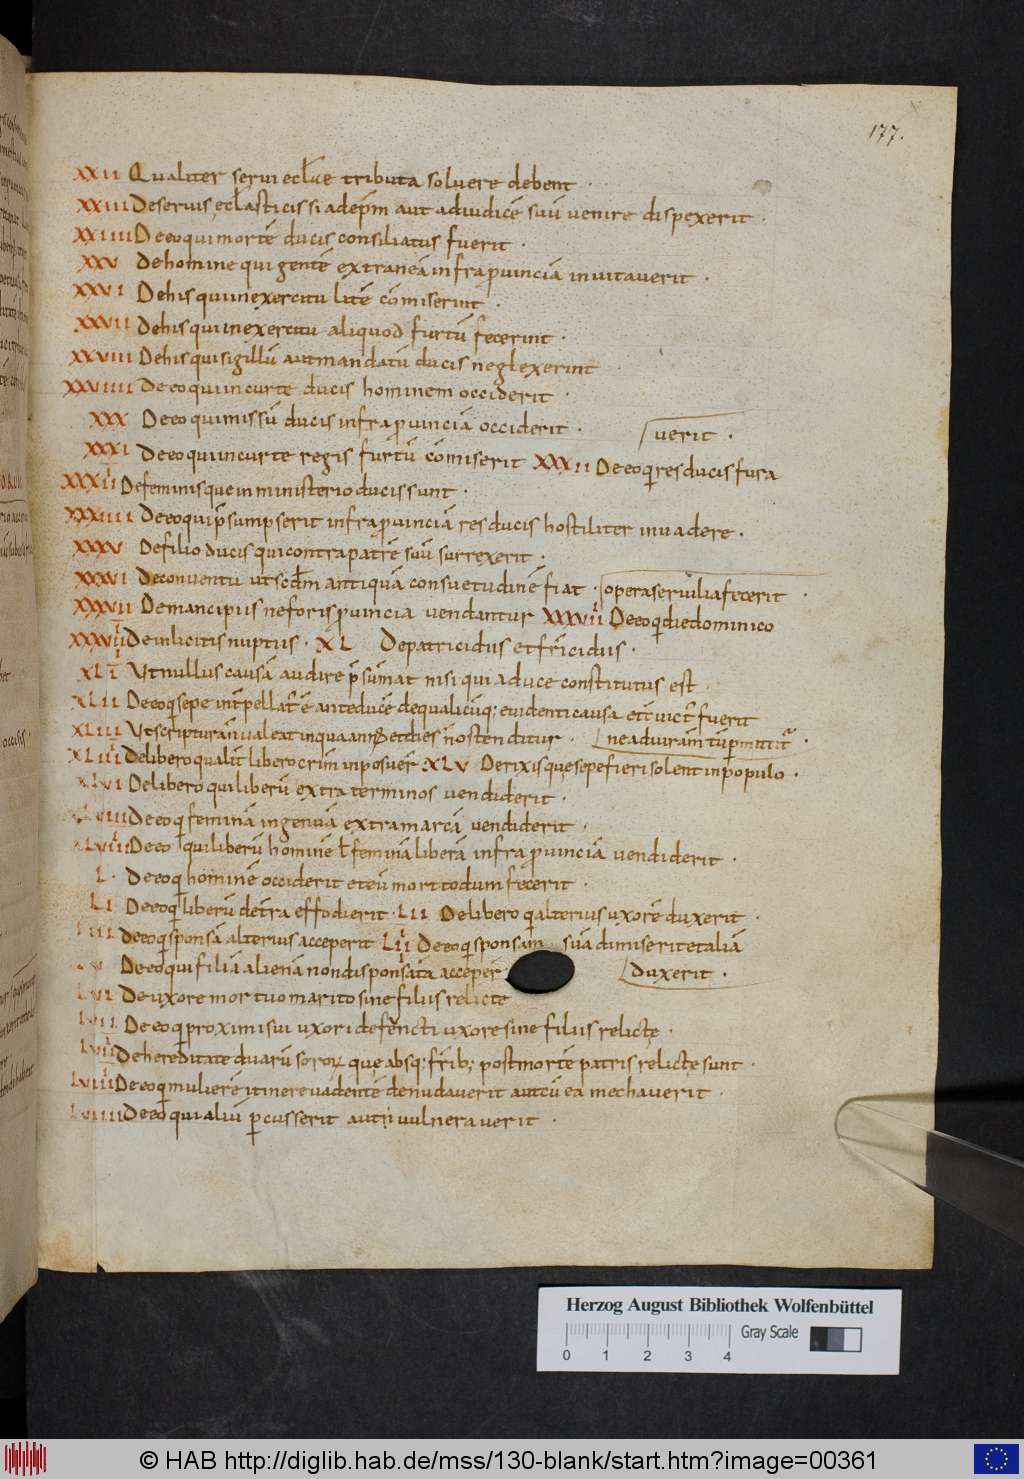 177.
XXII Qualiter serui eclꝭae tributa soluere debent ·
XXIII De seruis ęclꝭasticis si ad ep̄m aut ad iudicē suū uenire dispexerit ·
XXIIII De eo qui mortē ducis consiliatus fuerit ·
XXV De homine qui gentē extraneā infra prouinciā inuitauerit ·
XXVI De his qui in exercitu litē cōmiserint ·
XXVII De his qui in exercitu aliquod furtū fecerint ·
XXVIII De his qui sigillū aut mandatū ducis neglexerint
XXVIIII De eo qui in curte ducis hominem occiderit ·
XXX De eo qui missū ducis infra prouinciā occiderit · uerit ·
XXXI De eo qui in curte regis furtū cōmiserit XXXII De eo q̄ res ducis fura
XXXIII De feminis que in ministerio ducis sunt ·
XXXIIII De eo qui p̄sumpserit infra prouinciā res ducis hostiliter inuadere ·
XXXV De filio ducis qui contra patrē suū surrexerit ·
XXXVI De conuentu ut scd̄m antiquā consuetudinē fiat · opera seruilia fecerit ·
XXXVII De mancipiis ne foris prouincia uendantur XXXVIII De eo q̄ die dominico
XXXVIIII De inlicitis nuptiis · XL De patricidiis et fr̄icidiis ·
XLI Ut nullus causā audire p̄sumat nisi qui a duce constitutus est
XLII De eo q̄ sepe int̄pellat᷒ ē ante ducē de qualicūq; euidenti causa et c̄uict᷒ fuerit
XLIII Ut scriptura n̄ ualeat in qua ann᷒ et dies n̄ ostenditur · ne ad iuram̄tū p̄mittit᷒ ·
XLIIII De libero qualit̄ libero crim̄ inposuer̄ XLV De rixis que sepe fieri solent in populo ·
XLVI De libero qui liberū extra terminos uendiderit ·
XLVIII De eo q̄ feminā ingenuā extra marcā uendiderit ·
XLVIIII De eo qui liberū hominē ł feminā liberā infra prouinciā uendiderit ·
L · De eo q̄ hominē occiderit et eū mort᷒ todum fecerit ·
LI De eo q̄ liberū de t̄ra effodierit · LII De libero q̄ alterius uxorē duxerit ·
LIII De eo q̄ sponsā alterius acceperit LIIII De eo q̄ sponsam suā dimiserit et aliā
LV De eo qui filiā alienā non disponsatā acceper̄ duxerit ·
LVI De uxore mortuo marito sine filiis relicte
LVII De eo q̄ proximi sui uxori defuncti uxore sine filiis relictę ·
LVIII De hereditate duarū soror̄ quę absq; fr̄ib; post mortē patris relicte sunt ·
LVIIII De eo q̄ mulierē itinere uadentē denudauerit aut cū ea mechauerit ·
LVIIII De eo qui aliū percusserit aut uulnerauerit ·
Herzog August Bibliothek Wolfenbüttel
Gray Scale
0 1 2 3 4
© HAB http://diglib.hab.de/mss/130-blank/start.htm?image=00361